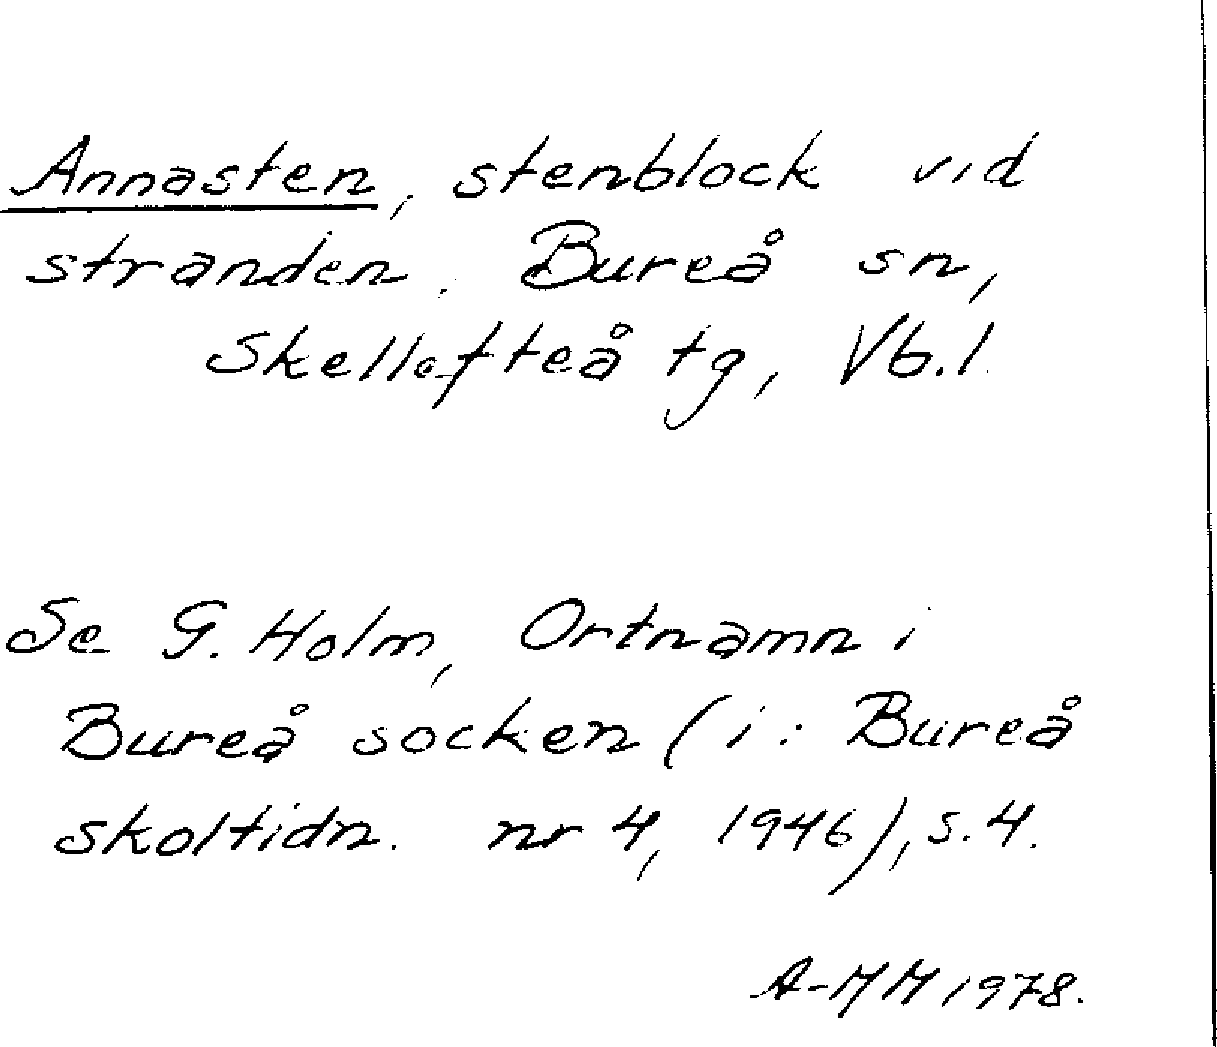 Annasten, stenblock vid
stranden. Bureå sn,
Skellefteå tg, Vb. l.
Se G. Holm, Ortnamn i
Bureå socken (i: Bureå
skoltidn. nr 4, 1946), s. 4.
A-MM 1978.